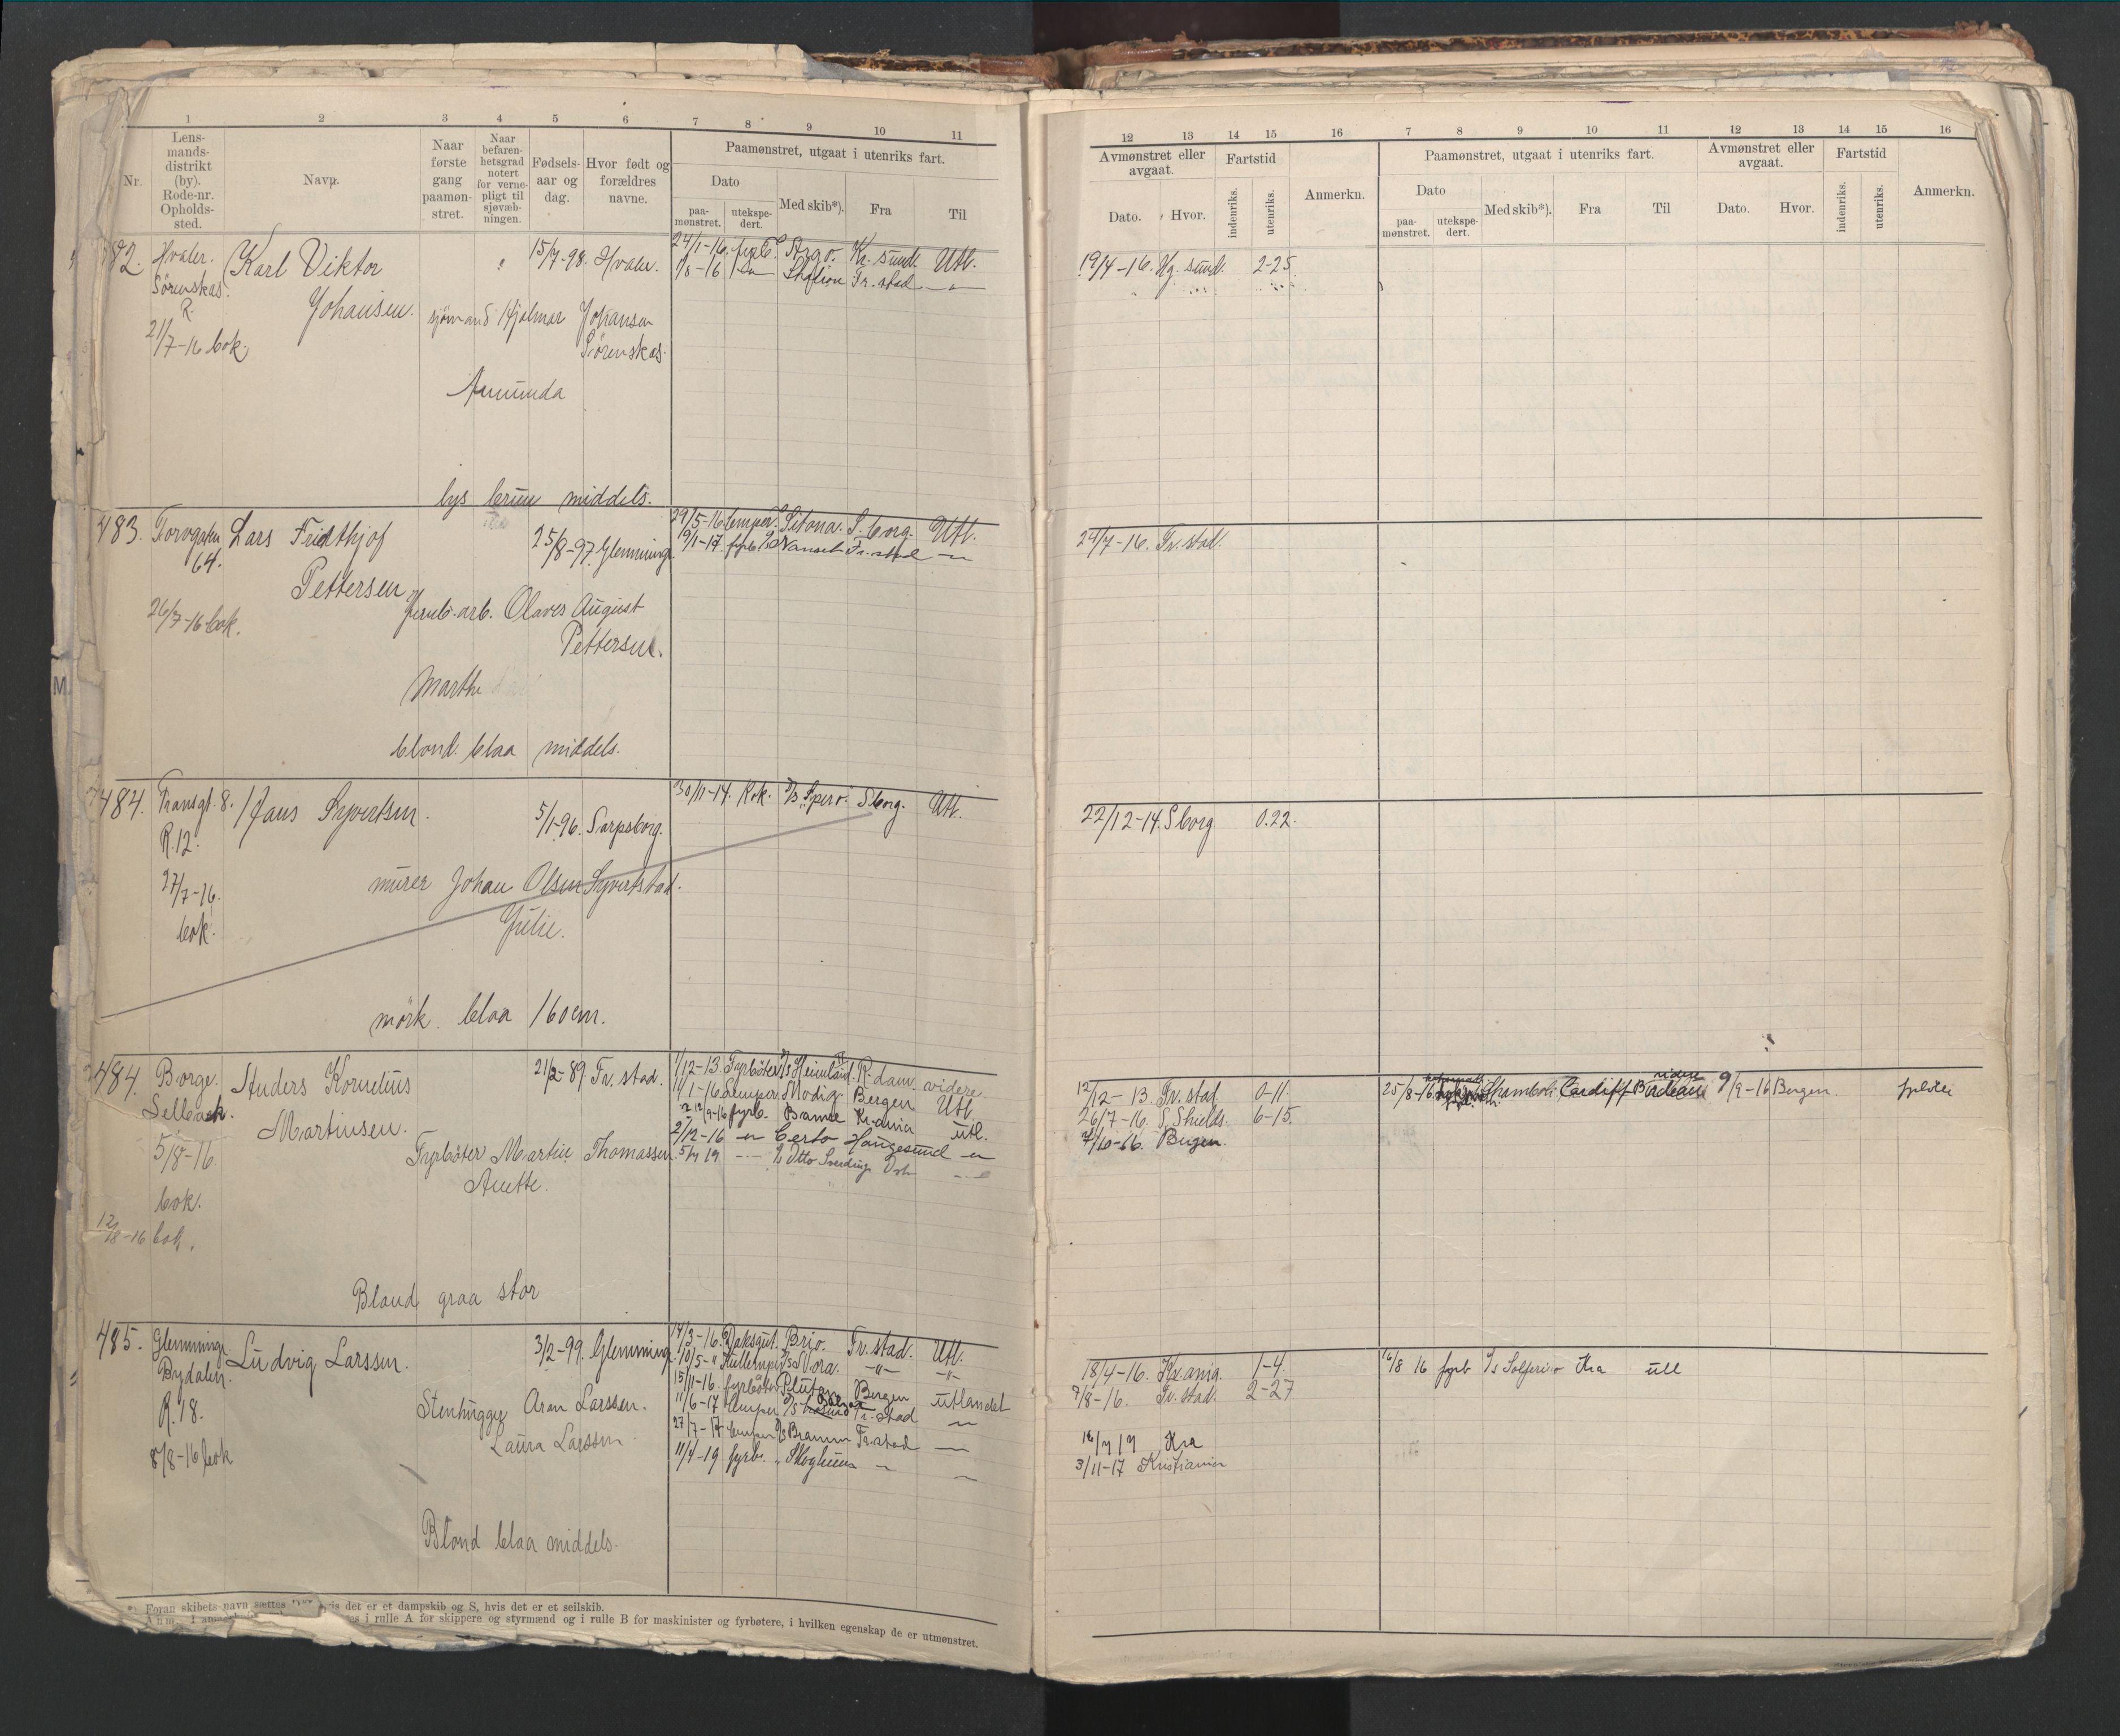 1 2 3 4 5 6 7 8 9 10 11
Nr.
Lens-
mands-
distrikt
(by).
Rode-nr.
Opholds-
sted.
Navn.
Naar
første
gang
paamøn-
stret.
Naar
befaren-
hetsgrad
notert
for verne-
pligt til
sjøvæb-
ningen.
Fødsels-
aar og
dag.
Hvor født og
forældres
navne.
Paamønstret, utgaat i utenriks fart.
Dato
paa-
mønstret.
utekspe-
dert.
Med skib*).
Fra
Til
482. Hvaler. Karl Viktor 15/7-98. Hvaler. 24/1-16. fyrb. Argo. Kr. sund. Utl.
Sörenskas. 1/8-16 Fr. stad
R. Johansen. sjömand Hjalmar Johansen
21/7-16 bok. Sörenskas.
Amunda
lys brun middels.
483. Torvgaten Lars Fridthjof 25/8-97. Glemminge 29/5-16 lemper. Sitona. S. borg. Utl.
64. 19/1-17. fyrb. D/S Nanset Fr. stad
Pettersen
26/7-16 bok. Jernb. arb. Olaves August
Pettersen.
Marthe
blond. blaa middels.
484. Transgt. 8. Hans Syvertsen. 5/1-96. Sarpsborg. 30/11-14. Kok. D/S Spero. Sborg. Utl.
R. 12.
27/7-16. murer Johan Olsen Syvertstad.
bok. Julie.
mörk. blaa 160 cm.
484. Borge. Anders Kornelius 21/2-89. Fr. stad. 1/12-13. Fyrböter D/S Heimland R-dam. videre
Selbaek. 11/1-16 Lemper. Modig Bergen Utl.
Martinsen. fyrb. Kr.ania utl.
5/8-16. Fyrböter Martin Thomassen. 2/12-16 Certo Haugesund
Anette. Otto Sverdrup
bok.
12/8-16 bok.
Blond graa stor
485. Glemminge Ludvig Larssen. 3/2-99. Glemminge 14/3-16. Daksgut. Brio. Fr. stad. Utl.
Bydalen. 10/5-" Kullemper D/S Nora. -"- -"-
R. 18. 15/11-16. fyrböter Pluto Bergen utlandet
Stenhugger Aron Larssen. 11/6-17 lemper D/S Fr. stad
Laura Larssen 27/7-17 lemper D/S Bramm Fr. stad
8/8-16 bok 11/4-19 fyrb. " Skogheim
Blond blaa middels.
*) Foran skibets navn sættes hvis det er et dampskib og S, hvis det er et seilskib.
i rulle A for skippere og styrmænd og i rulle B for maskinister og fyrbøtere, i hvilken egenskap de er utmønstret.
12 13 14 15 16 7 8 9 10 11 12 13 14 15 16
Avmønstret eller
avgaat.
Dato.
Hvor.
Fartstid
indenriks.
utenriks.
Anmerkn.
Paamønstret, utgaat i utenriks fart.
Dato
paa-
mønstret.
utekspe-
dert.
Med skib*).
Fra
Til
Avmønstret eller
avgaat.
Dato.
Hvor.
Fartstid
indenriks.
utenriks.
Anmerkn.
19/4-16. Hg. sund. 2-25.
24/7-16. Fr. stad.
22/12-14. Sborg. 0.22.
12/12-13. Fr. stad 0-11. 25/8-16 Cardiff videre 9/9-16 Bergen.
26/7-16. S. Shields. 6-15.
7/10-16. Bergen.
18/4-16. Kr.ania. 1-4. 16/8 16 fyrb D/S Solferino Kra utl
9/8-16. Fr. stad. 2-27.
Kra
3/11-17 Kristiania